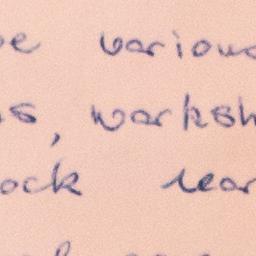 be various
s, worksh
ock lear